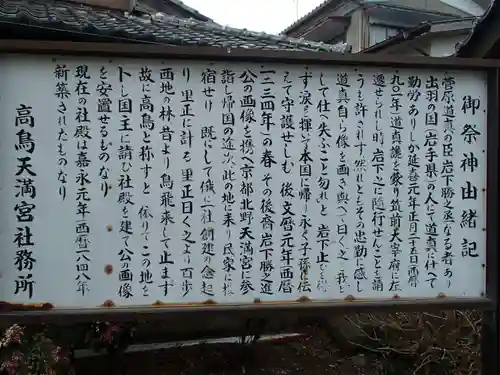 御祭神由緒記
菅原道真の臣岩下勝之丞なる者あり
出羽の国（岩手県）の人にて道真に仕へて
勤労ありしか延喜元年正月二十五日（西暦
九〇一年）道真讒を蒙り筑前大宰府に左
遷せられし時岩下之に随行せんことを請
うも許されす然れともその忠勤に感し
道真自ら像を画き與へて曰く之を我と
して仕へ失ふこと勿れと岩下止を得
す涙を揮って本国に帰り永く子孫に伝
えて守護せしむ後文暦元年（西暦
一二三四年）の春その後裔岩下勝之進
公の画像を携へ京都北野天満宮に参
詣し帰国の途次此の地に来り民家に投
宿せり既にして儀に社創建の念起
り里正に計る里正曰く之より百歩
西地の林昔より鳥飛来して止ます
故に高鳥と称すと依りてこの地を
卜し国主に請ひ社殿を建て公画像
を安置せるものなり
現在の社殿は嘉永元年（西暦一八四八年）
新築されたものなり
高鳥天満宮社務所